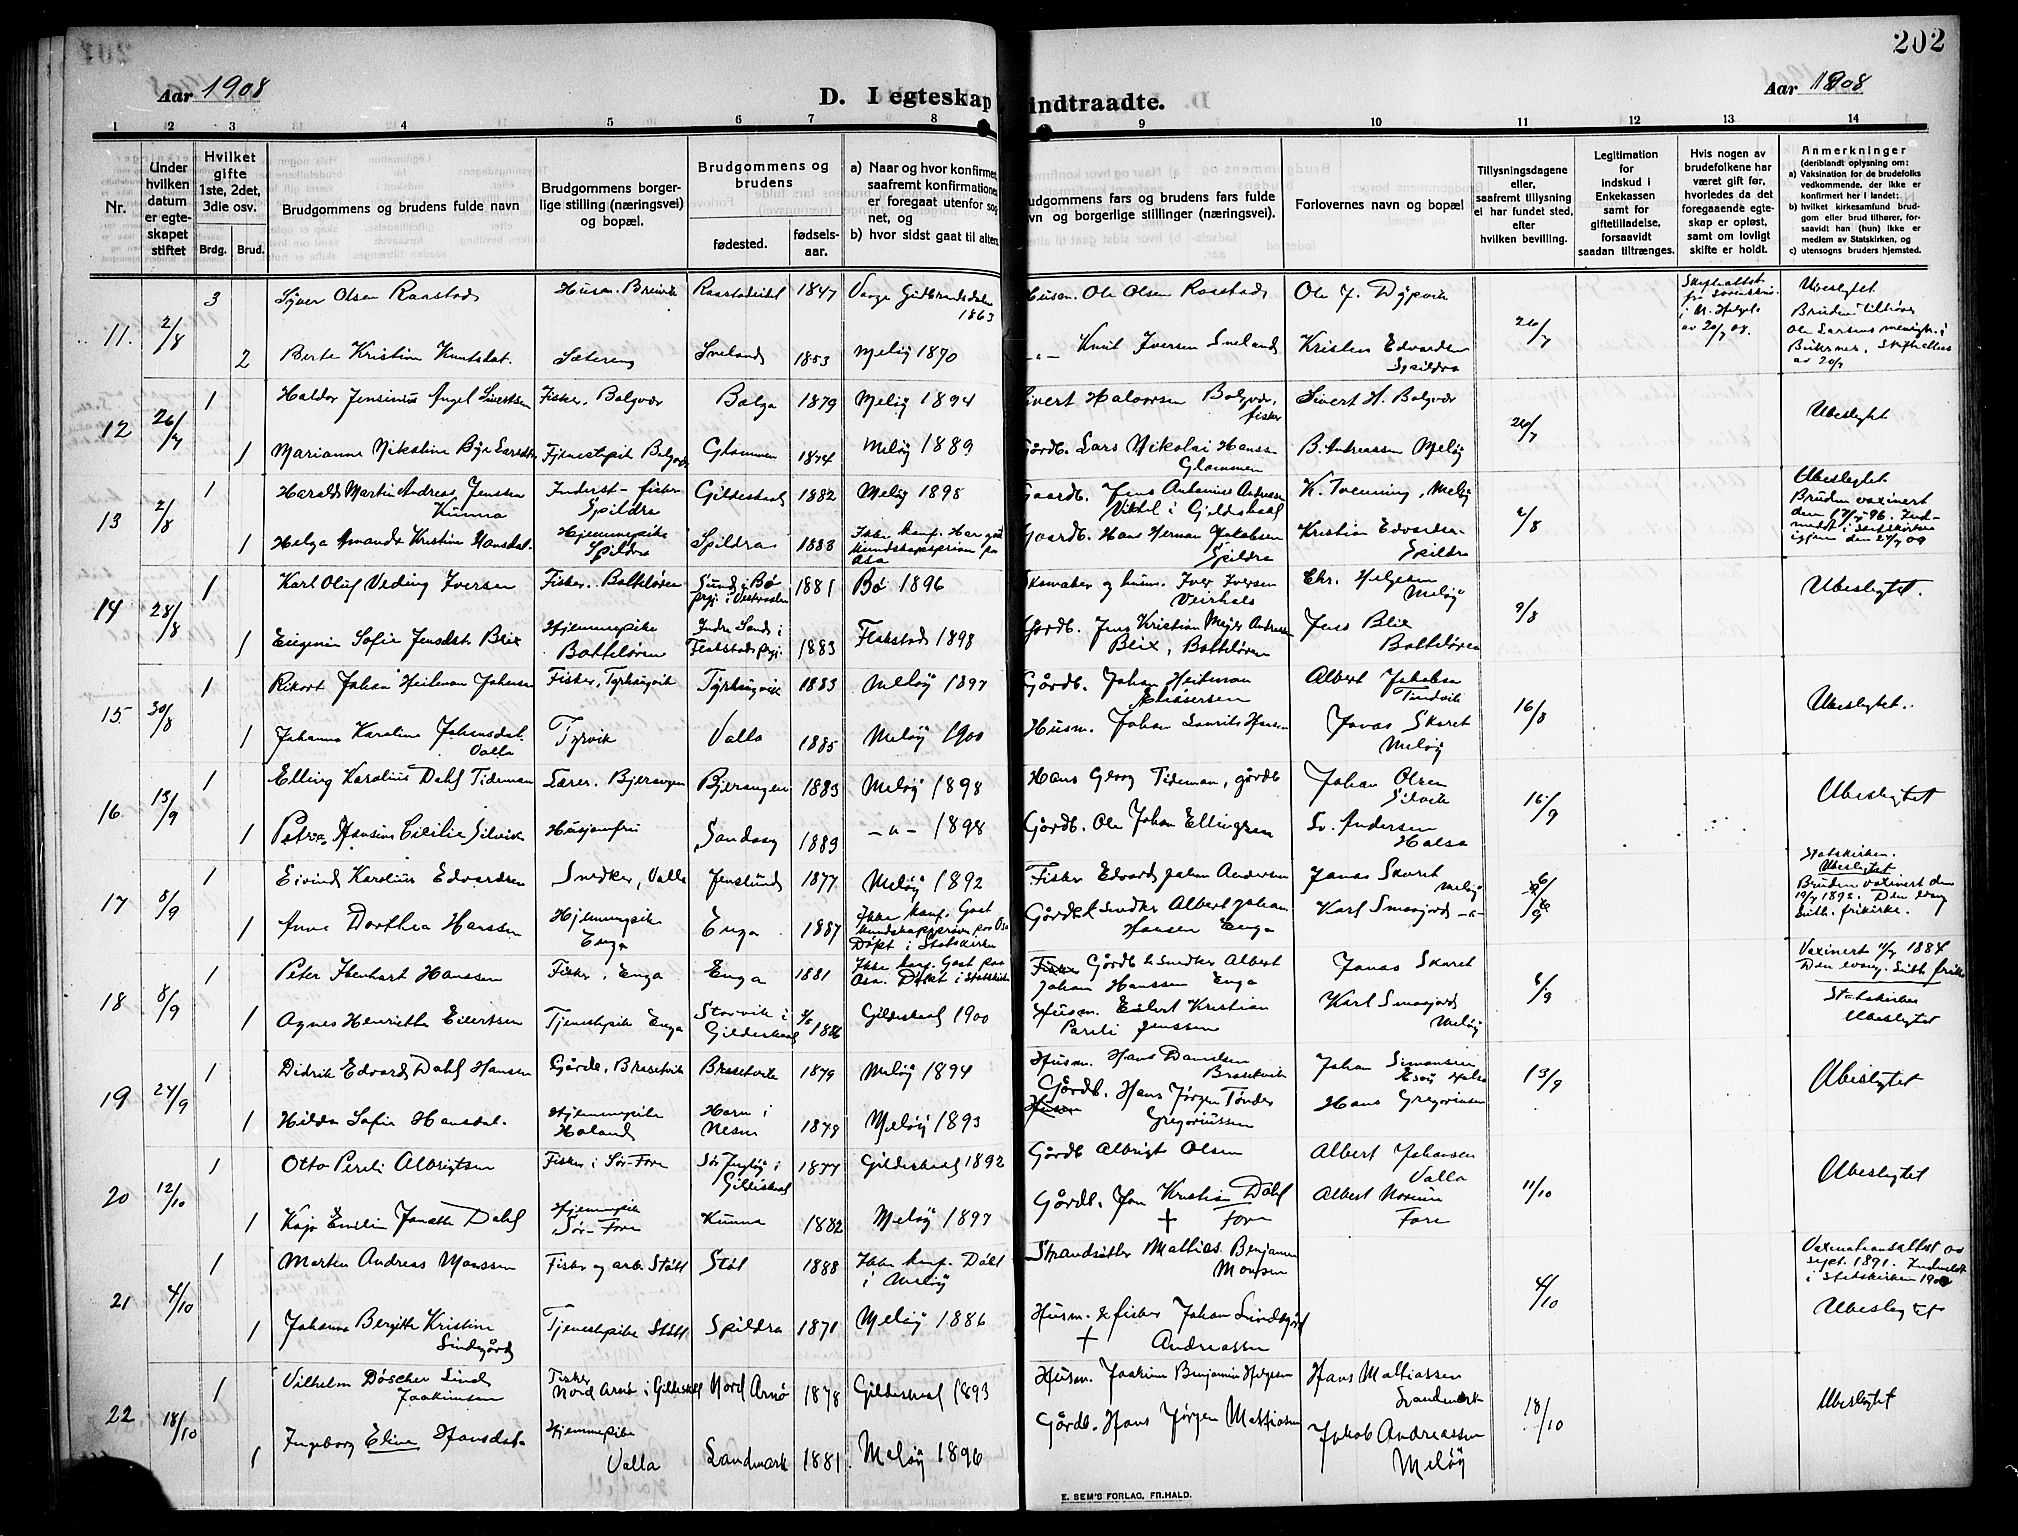 202
Aar 1908
D. I egteskap indtraadte.
Aar 1908
1 2 3 4 5 6 7 8 9 10 11 12 13 14
Nr.
Under hvilken datum er egteskapet stiftet
Hvilket gifte 1ste, 2det, 3die osv.
Brdg. Brud.
Brudgommens og brudens fulde navn
Brudgommens borgerlige stilling (næringsvei) og bopæl.
Brudgommens og brudens
fødested. fødselsaar.
a) Naar og hvor konfirmet,
saafremt konfirmationen
er foregaat utenfor sog
net, og
b) hvor sidst gaat til alters
udgommens fars og brudens fars fulde
vn og borgerlige stillinger (næringsvei).
Forlovernes navn og bopæl
Tillysningsdagene eller, saafremt tillysning ei har fundet sted, efter hvilken bevilling.
Legitimation for indskud i Enkekassen samt for giftetilladelse, forsaavidt saadan tiltrænges.
Hvis nogen av brudefolkene har været gift før, hvorledes da det foregaaende egteskap er opløst, samt om lovligt skifte er holdt.
Anmerkninger
(deriblandt oplysning om:
a) Vaksination for de brudefolks vedkommende, der ikke er konfirmert her i landet;
b) hvilket kirkesamfund brudgom eller brud tilhører, forsaavidt han (hun) ikke er medlem av Statskirken, og
c) utensogns bruders hjemsted.
11. 2/8 3 Syver Olsen Raastad Husm. Breivik 1847 1863 Husm. Ole Olsen Ole J. Dypvik 26/7 Ubeslegtet
2 Berte Kristine Knutsdat. Sætereng 1853 Meløy 1870 Knut Iversen Kristen Edvardsen Spildra Bruden tilhører
12 26/7 1 Haldor Jensinius Angel Sivertsen Fisker, Bolgvær Bolga 1879 Meløy 1894 Sivert Halvorsen Bolgvær, fisker Sivert H. Bolgvær 26/7 Ubeslegtet
1 Marianne Nikoline Tjenestepike Bolgvær Glommen 1874 Meløy 1889 Gårdb. Lars Nikolai Hansen Glommen B. Andreassen Meløy
13 2/8 1 Harald Martin Andreas Jensen Kunna Inderst - fisker Spildra Gildeskaal 1882 Meløy 1898 Gaardb. Jens Antonius Andersen i Gildeskaal K. Tvenning, Meløy 2/8 Ubeslegtet
Bruden vaxinert den
1 Helga Amanda Kristine Hansdat. Hjemmepike Spildra Spildra 1883 Ikke konf. Har gåt kundskapsprøven på Osa Gaardb. Hans Herman Jakobsen Spildra Kristian Edvardsen Spildra igjen den
14 28/8 1 Karl Oluf Veding Iversen Fisker. Bolteløren Sund i Bø prgj. i Vesteraalen 1881 Bø 1896 Skomaker og husm. Iver Iversen Chr. Helgesen Meløy 9/8 Ubeslegtet.
1 Eugenie Sofie Jensdat. Blix Hjemmepike Bolteløren Indre Sand i Flakstad prgj. 1883 Flakstad 1898 Gårdb. Jens Kristian Meyer Andersen Blix, Bolteløren Jens Blix Bolteløren
15 30/8 1 Rikart Johan Heitman Johansen Fisker, 1883 Meløy 1897 Gårdb. Johan Heitman Albert Jakobsen Tindvik 16/8 Ubeslegtet.
1 Johanna Karoline Johansdat. Valla Tyrvik Valla 1885 Meløy 1900 Husm. Johan Laurits Hansen Jonas Skaret Meløy
16 13/9 1 Elling Karolius Dahl Tideman Lærer. Bjerangen Bjerangen 1883 Meløy 1898 Hans Georg Tideman, gårdb Johan Olsen Silvik 16/9 Ubeslegtet
1 Petra Hansine Cicilie Silvik Husjomfru Sandaag 1883 —"— 1898 Gårdb. Ole Johan Ellingsen Sv. Andersen Halsa
17 8/9 1 Eivind Karolius Edvardsen Snedker, Valla Jenslund 1877 Meløy 1892 Fisker Edvard Johan Andersen Jonas Skaret Meløy 6/9 Statskirken.
Ubeslegtet
Bruden vaxinert den
1892. Den evg luth. frikirke.
1 Anne Dorthea Hanssen Hjemmepike Enga Enga 1887 Ikke konf. Gaat kundskapsprøven paa Osa Døpt i Statskirken Gårdb & snedker Albert Johan Hansen Enga Karl Smaajord —"—
18 8/9 1 Peter Ebenhart Hanssen Fisker, Enga Enga 1881 Ikke konf. Gaat paa Osa. Døpt i statskirken Fisker Gårdb & snedker Albert Johan Hanssen Enga Jonas Skaret 6/9 Vaxinert 1884
Den evang. luth frik.
1 Agnes Henriette Eilertsen Tjenestepike Enga Storvik i Gildeskaal 1886 Gildeskaal 1900 Husm. Eilert Kristian Pareli Jenssen Karl Smaajord Meløy Statskirken
Ubeslegtet
19 27/9 1 Didrik Edvard Dahl Hansen Gårdb., Brasetvik Brasetvik 1879 Meløy 1894 Husm. Hans Danielsen Brasetvik Johan Simonsen 13/9 Ubeslegtet
1 Hilda Sofie Hansdat. Hjemmepike Haland Havn i Nesna 1879 Meløy 1893 Gårdb. Husm Hans Jørgen Tønder Gregoriussen Hans Gregoriusen
20 12/10 1 Otto Pareli Albrigtsen Fisker i Sør-Fore i Gildeskaal 1877 Gildeskaal 1892 Gårdb Albrigt Olsen Albert Johansen Valla 11/10 Ubeslegtet
1 Kaja Emelie Jonette Dahl Hjemmepike Sør-Fore Kunna 1882 Meløy 1897 Gårdb. Jon Kristian Dahl † Fore Albert Fore
21 4/10 1 Morten Andreas Monssen Fisker og arb. Støtt Støt 1888 Ikke konf. Døbt i Meløy Strandsitter Mathias Benjamin Monsen 4/10 Vaxinationsattest av
sept. 1891. Indmeldt
i Statskirken
1 Johanna Bergitte Kristine Lindgård Tjenestepike Støtt Spildra 1871 Meløy 1886 Husm. & fisker Johan Lindgård † Andreassen Ubeslegtet
22 18/10 1 Vilhelm Døscher Lind Joakimsen Fisker Nord Arnø i Gildeskål Nord Arnø 1878 Gildeskaal 1893 Husm. Joakim Benjamin Helgesen Hans Mathiassen Landmark 18/10 Ubeslegtet
1 Ingeborg Eline Hansdat. Hjemmepike Valla Landmark 1881 Meløy 1896 Gårdb. Hans Jørgen Mathiasen Jakob Andreassen Meløy
E. SEM'S FORLAG, FR.HALD.